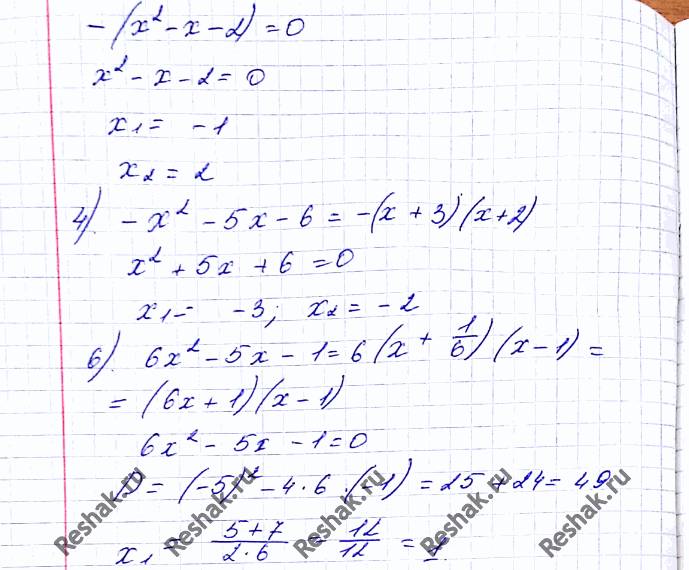 -(x² - x - 2) = 0
x² - x - 2 = 0
x₁ = -1
x₂ = 2
4). -x² - 5x - 6 = -(x + 3)(x + 2)
x² + 5x + 6 = 0
x₁ = -3; x₂ = -2
6). 6x² - 5x - 1 = 6(x + 1/6)(x - 1) =
= (6x + 1)(x - 1)
6x² - 5x - 1 = 0
D = (-5)² - 4 · 6 · (-1) = 25 + 24 = 49
x₁ = (5+7)/(2·6) = 12/12 = 1
Reshak.ru Reshak.ru Reshak.ru Reshak.ru Reshak.ru